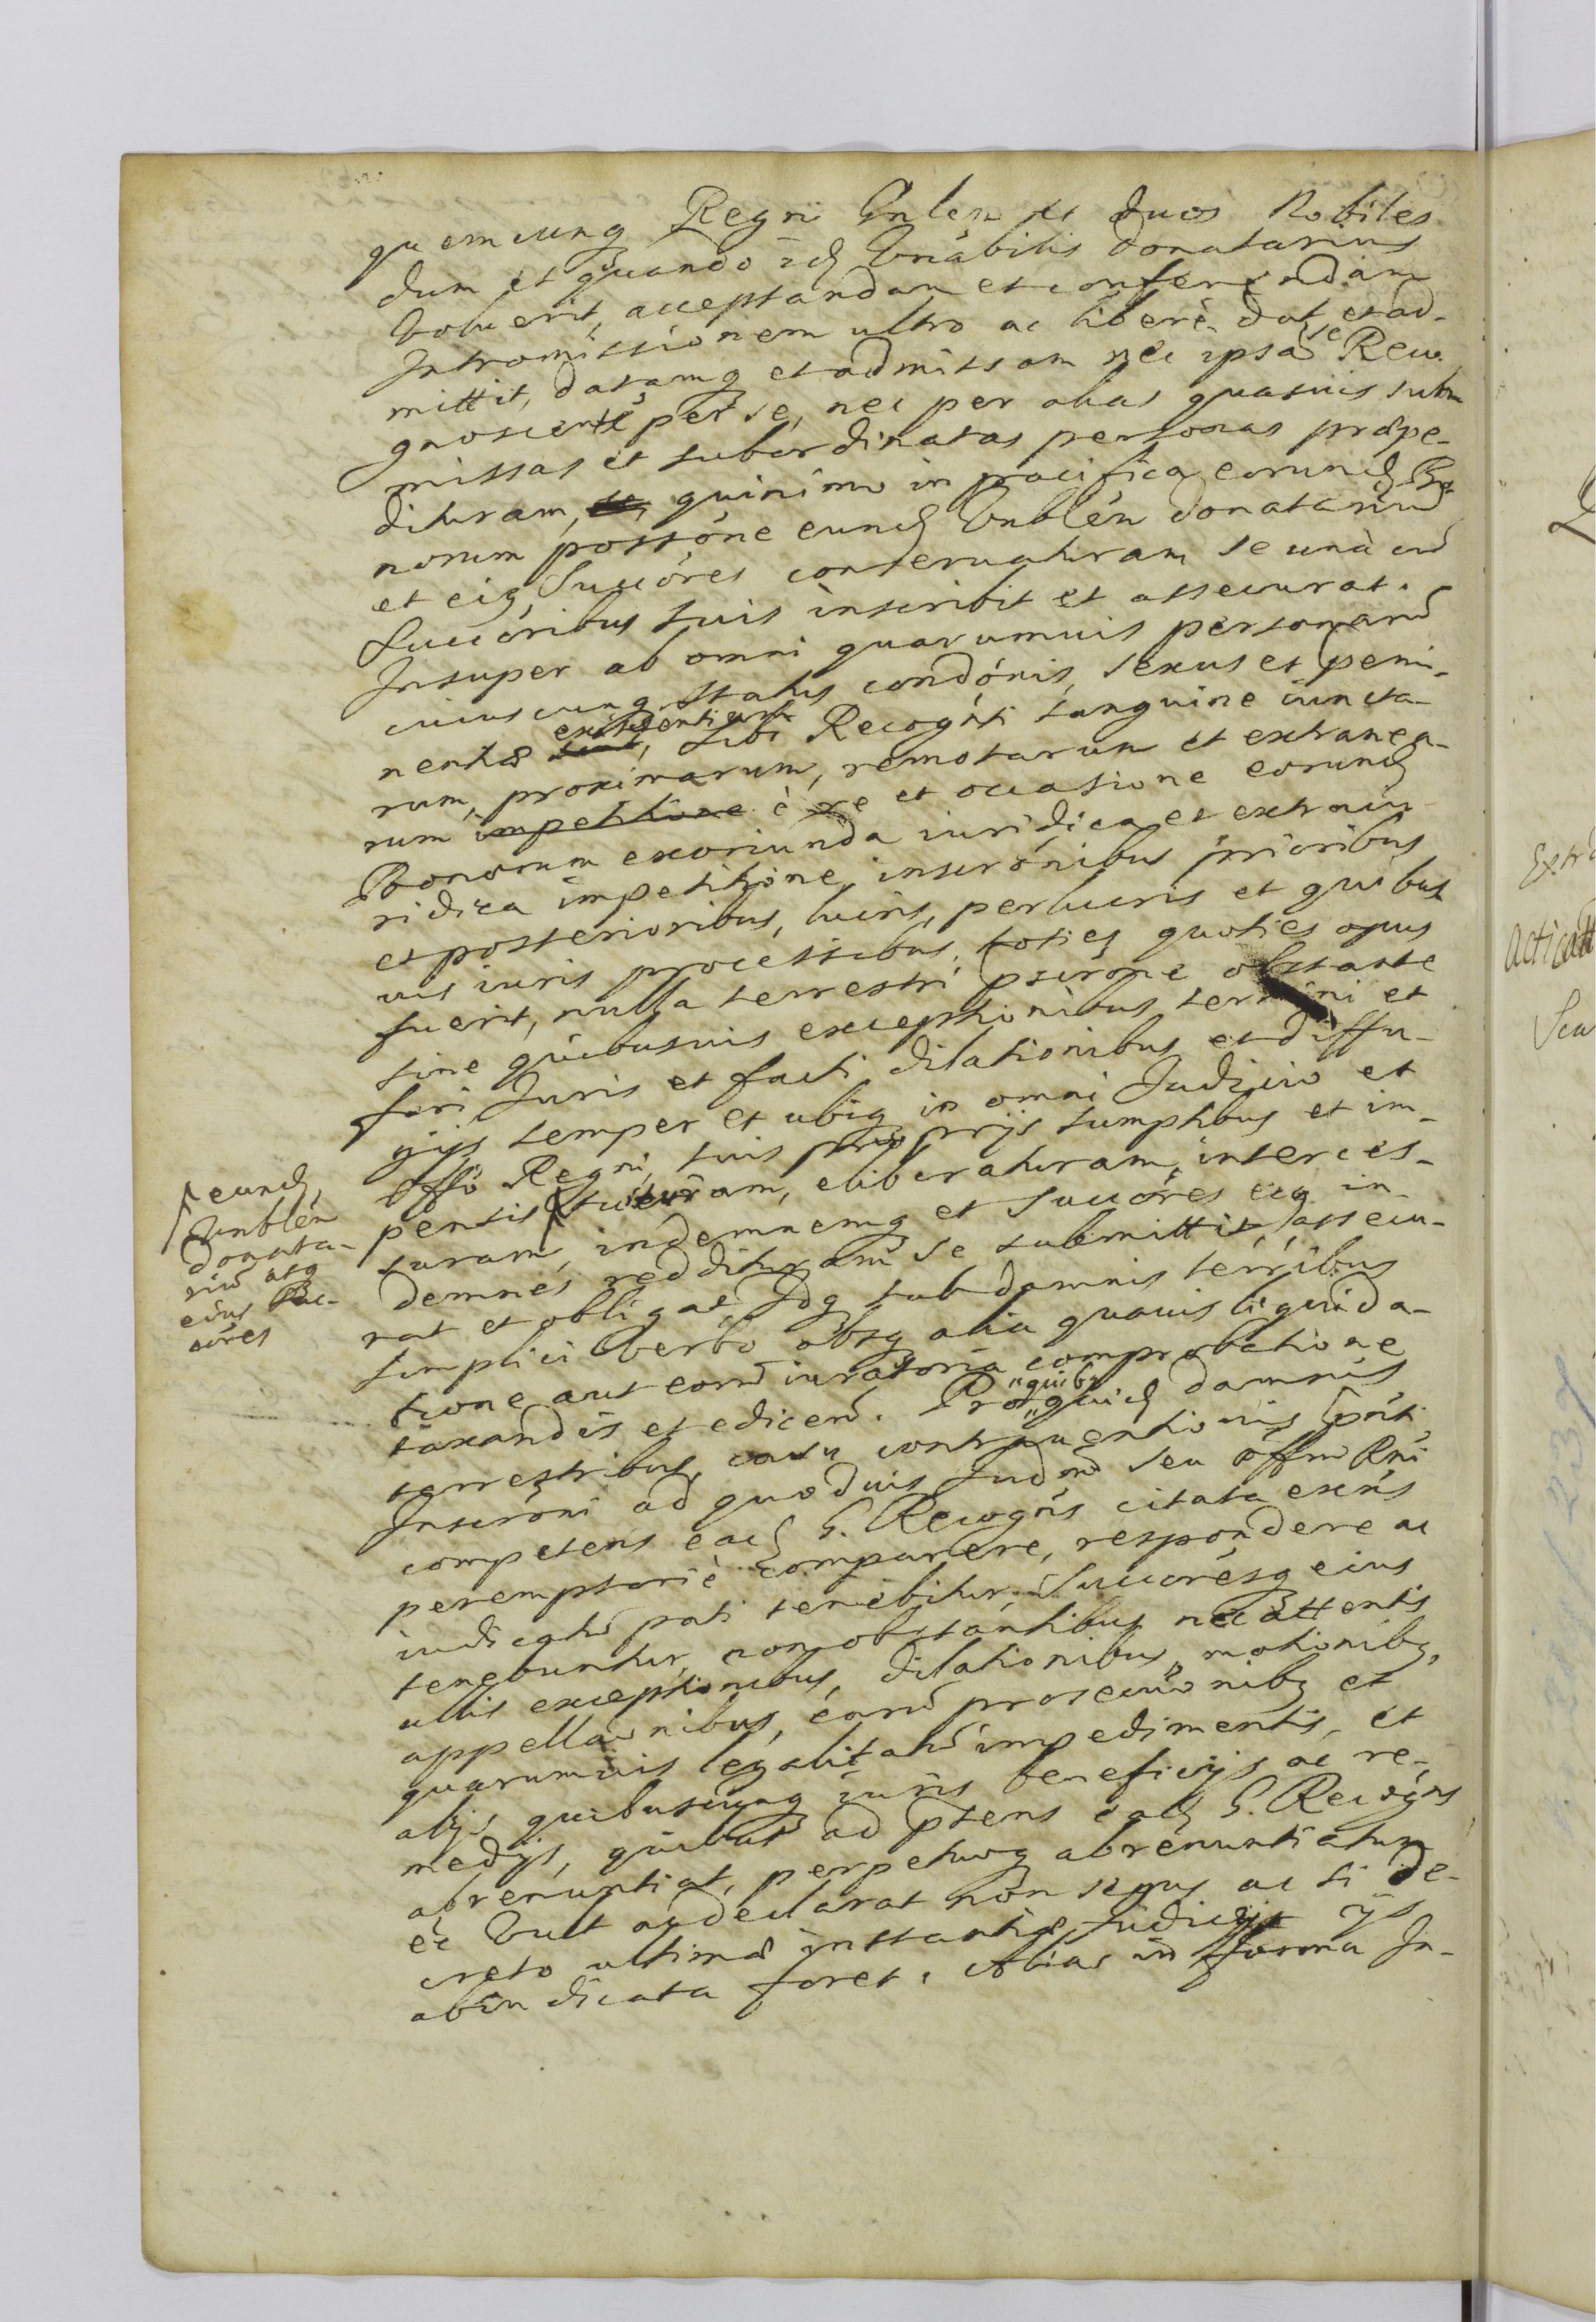 quemcunq Regni Gnlem et duos Nobiles
dum et quando idq Vnabilis donatarius
voluerit, acceptandam et conferendam
Intromissionem ultro ac liberè dat et ad-
mittit, datamq et admissam nec ipsā se Reco-
gnoscentē per se, nec per alias quasuis subm
missas et subordinatas personas præpe-
dituram, quinimo in pacifica eorundq Bo-
norum possóne eundq Vnblen donatariū
et eiq Succóres conseruaturam se unà cū
Succoribus suis inscribit et assecurat.
Insuper ab omni quarumuis personarū
cuiuscunq status condónis, sexus et pemi-
nentiæ existentium, sibi Recognti sanguine iuncta-
rum, proximarum, remotarum et extranea-
rum impetitione è re et occasione eorundq
Bonorum exoriunda iuridica et extraiu-
ridica impetitione, inscrónibus prioribus
et posterioribus, lucris, perlucris et quibus
uis iuris processibus, toties quoties opus
fuerit, nulla terrestri pscrone obstante
sine quibusuis exceptionibus termini et
fori Iuris et facti dilationibus et diffu-
gijs semper et ubiq in omni Judicio et
Offo Regni, suis proprijs sumptibus et im-
pensis tuituram, eliberaturam, interces-
suram, indemnemq et Succóres eiq in-
demnes reddituram se submittit, assecu-
rat et obligat. Idq sub damnis terribus
simplici verbo absq alia quauis liquida-
tione aut eorū iuratoria comprobatione
taxandis et edicen. Pro quibq quidq damnis
terrestribus, casu contrauentionis pnti
Inscróni ad quoduis Judm seu offm Rni
competens eadq G. Recogns citata exns
peremptoriè comparere, respondere ac
iudicatū pati tenebitur, Succóresq eius
tenebuntur, non obstantibus nec attentis
ullis exceptionibus, dilationibus, motionibq,
appellaonibus, earū prosecuonibq et
quarumuis legalitatū impedimentis, et
alijs quibuscunq iuris beneficijs ac re-
medijs, quibus ad psens eadq G. Recogns
abrenuntiat, perpetuoq abrenuntiatum
ee vult ac declarat non secus ac si de-
creto ultimæ instantiæ Judicij ijs
abiudicata foret. Alias in forma In-
eundq
Vnblen
donata-
riū atq
eius Suc-
cores